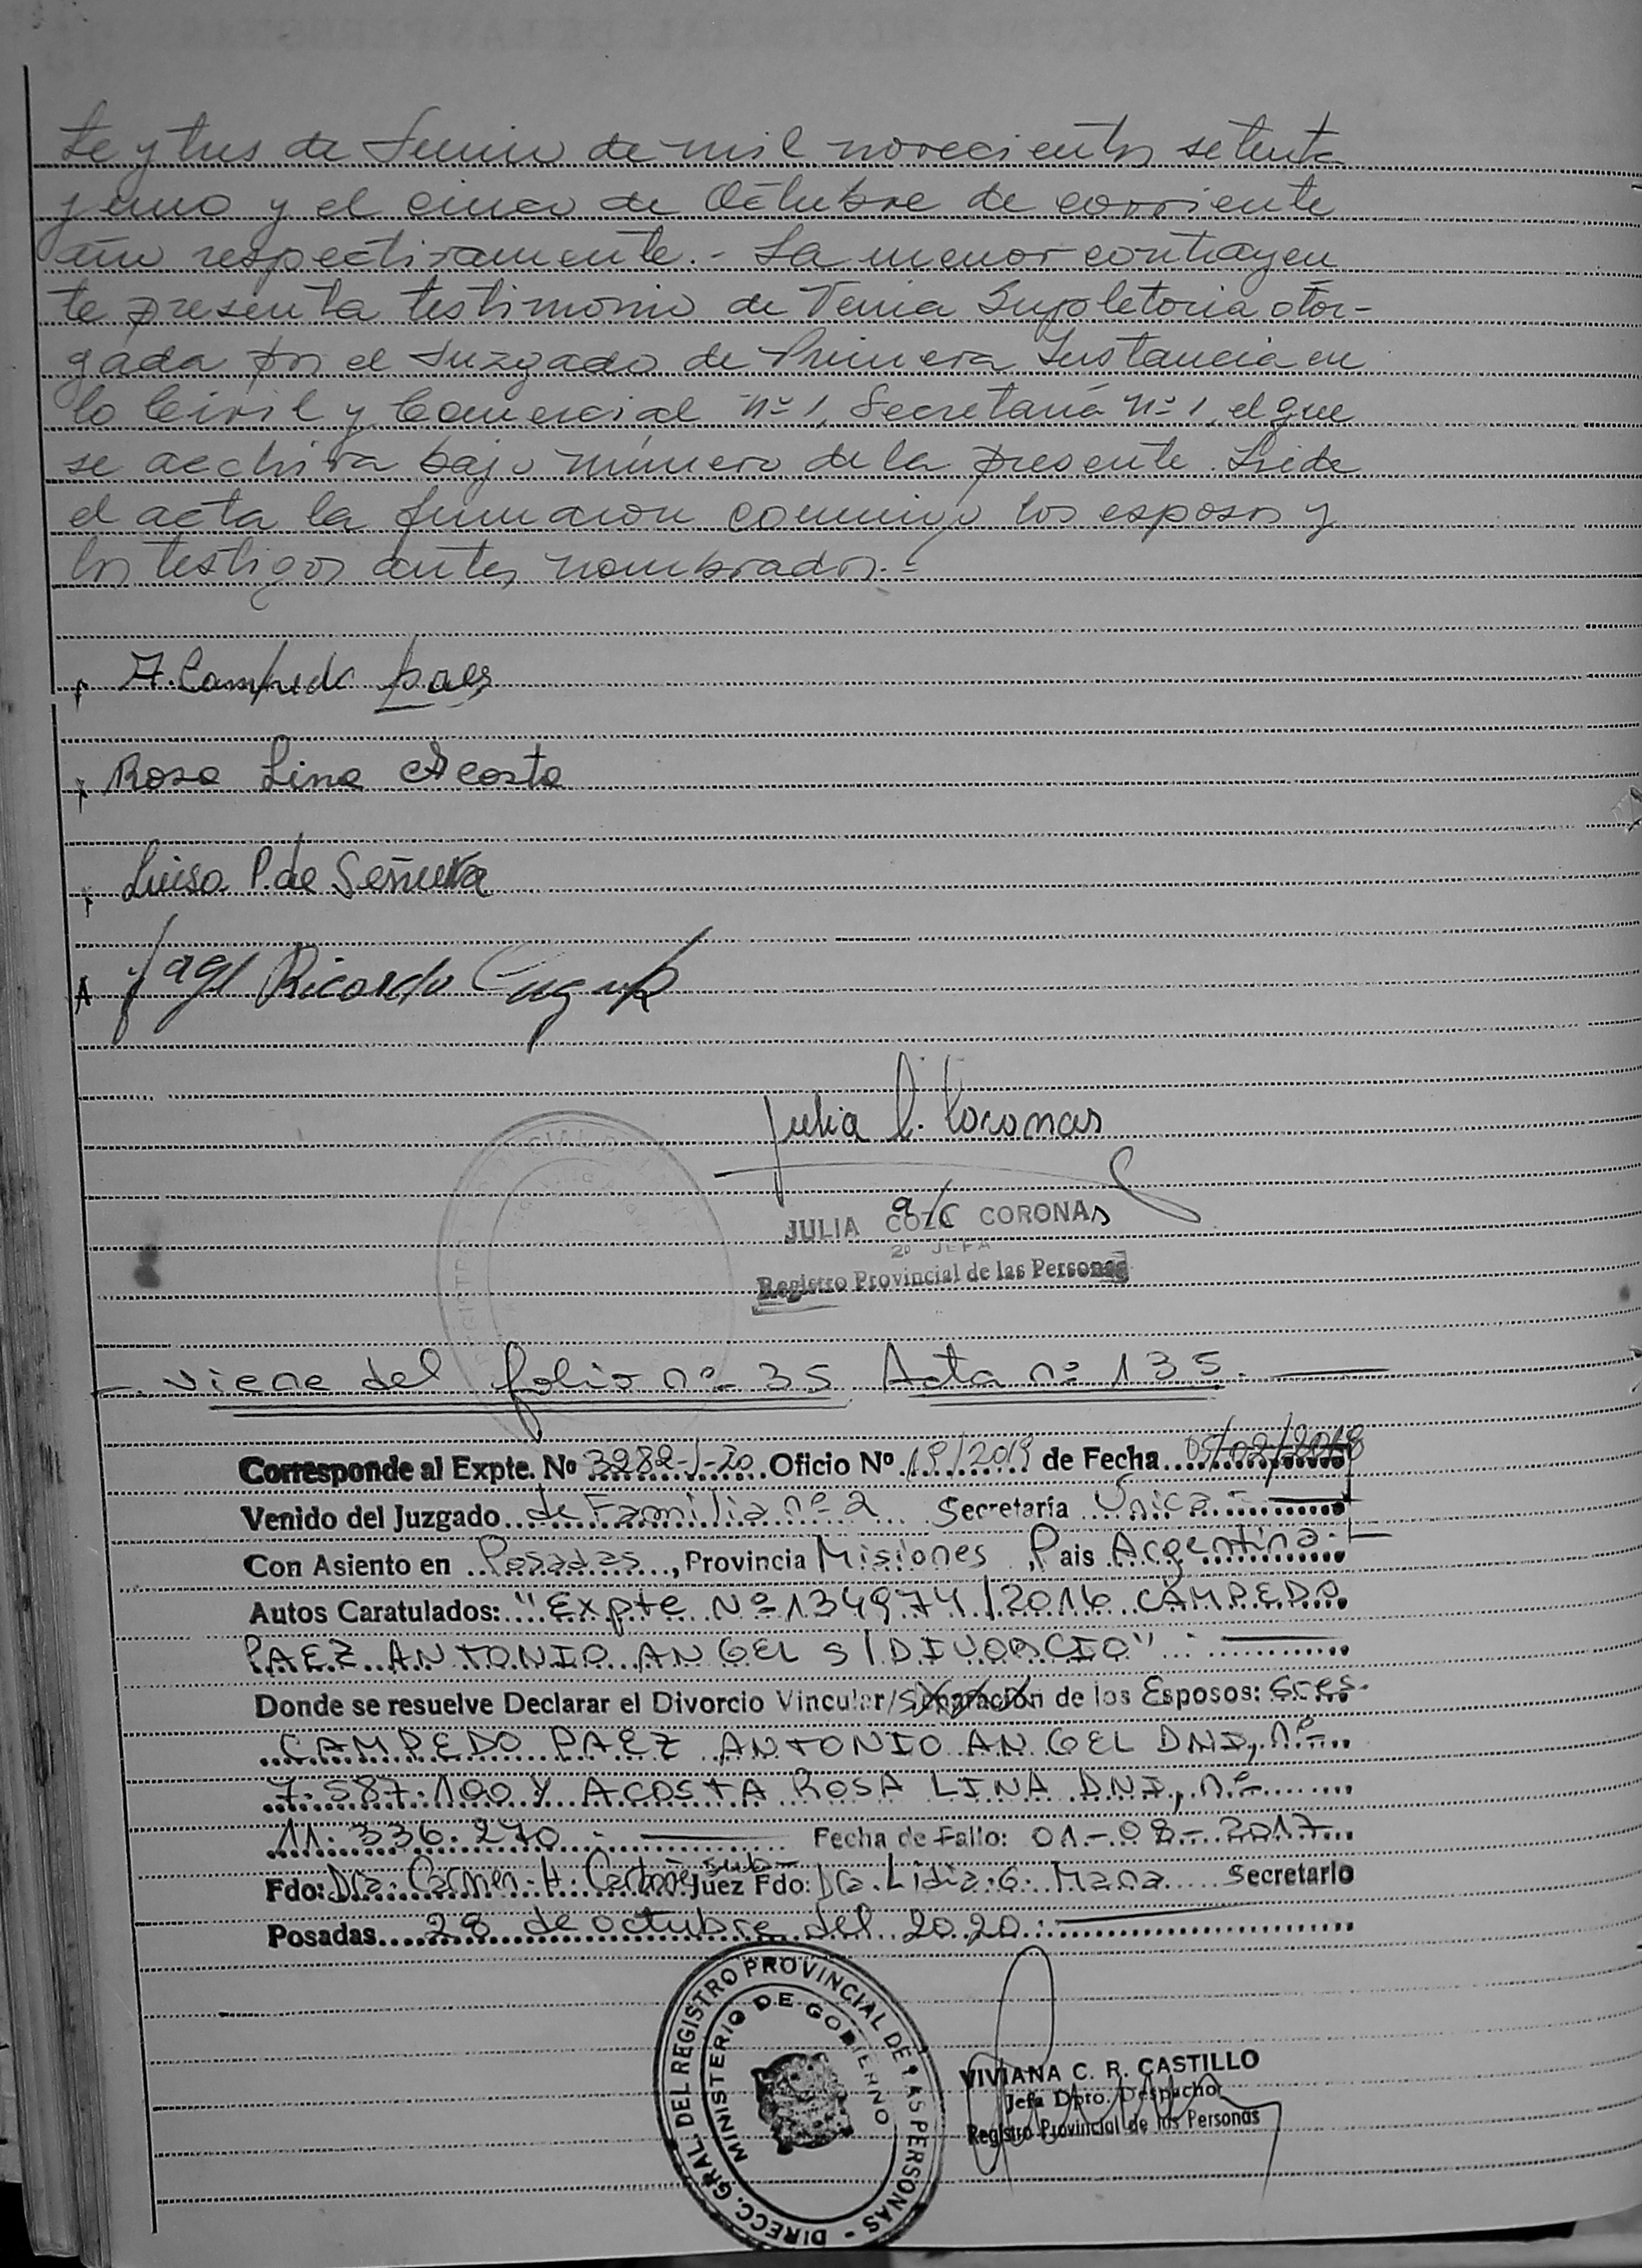 te y tres de Junio de mil novecientos setenta
y uno y el cinco de Octubre de corriente
año respectivamente.- La menor contrayen
te presenta testimonio de Venia Supletoria otor-
gada por el Juzgado de Primera Instancia en
lo Civil y Comercial nº 1, Secretaría nº 1, el que
se archiva bajo número de la presente. Leída
el acta la firmaron conmigo los esposos y
los testigos antes nombrados.=
A. Campedo Paez
Rosa Lina Acosta
Luisa P. de
Ricardo
Julia C. Coronas
a/c
JULIA CORONAS
2º JEFA
Registro Provincial de las Personas
-. Viene del folio nº 35 Acta nº 135.
Corresponde al Expte. Nº 3282-/-20 Oficio Nº 19/2019 de Fecha
Venido del Juzgado de Familia nº 2 Secretaría Única.-
Con Asiento en Posadas, Provincia Misiones, Pais Argentina.-
Autos Caratulados: "Expte Nº 134974/2016 CAMPEDO
PAEZ ANTONIO ANGEL S/DIVORCIO".
Donde se resuelve Declarar el Divorcio Vincular/Separación de los Esposos: Sres.
CAMPEDO PAEZ ANTONIO ANGEL DNI, nº
7.587.190 Y ACOSTA ROSA LINA DNI, nº
11.336.270.- Fecha de Fallo: 01-08-2017
Fdo: Dra. Carmen H. Juez Fdo: Dra. Lidia G. sub- Secretario
Posadas 28 de octubre del 2020.-
DIRECC. GRAL. DEL REGISTRO PROVINCIAL DE LAS PERSONAS -
MINISTERIO DE GOBIERNO
VIVIANA C. R. CASTILLO
Jefa Dpto. Despacho
Registro Provincial de las Personas